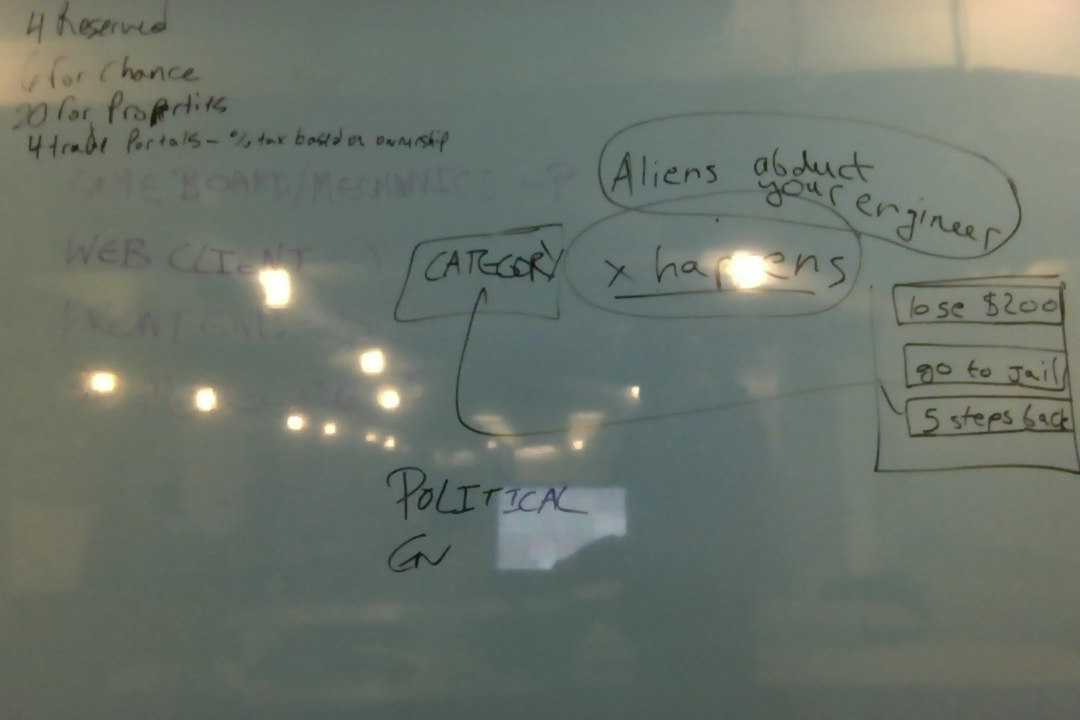 4 Reserved
6 for Chance
20 for Propertits
4 trade Portals - % tax based on ownership
GAME BOARD/MECHANICS - P
Aliens abduct
your engineer
WEB CLIENT
CATEGORY
x happens
lose $200
go to jail
5 steps back
POLITICAL